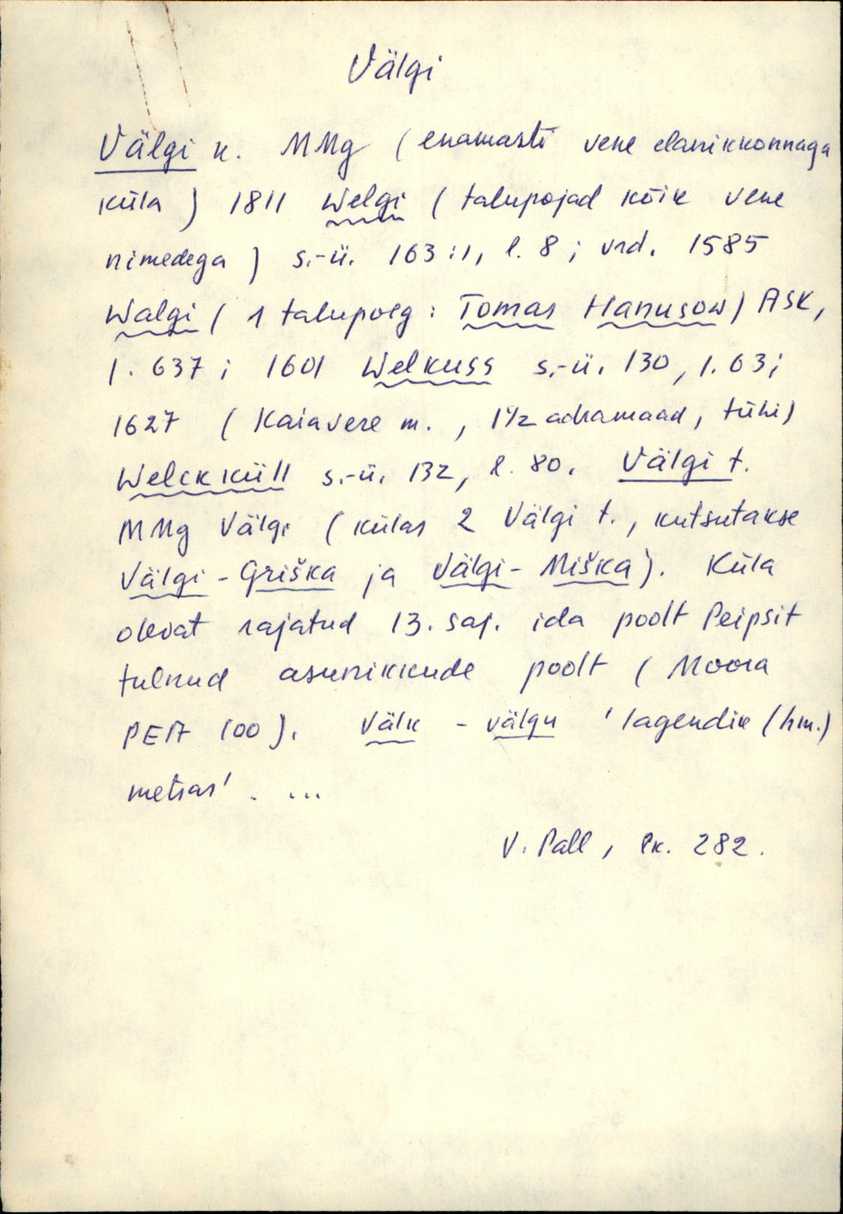 Välgi
Välgi k. MMg (enamasti vene elanikkonnaga
küla) 1811 Welgi (talupojad kõik vene
nimedega) s.-ü. 163:1, l. 8; vrd. 1585
Walgi (1 talupoeg: Tomas Hanusow) ASK,
l. 637; 1601 Welkuss s.-ü. 130, l. 63;
1627 (Kaiavere m., 1 1/2 adramaad, tühi)
Welckküll s.-ü. 132, l. 80. Välgi t.
MMg Välgi (külas 2 Välgi t., kutsutakse
Välgi-Griška ja Välgi-Miška). Küla
olevat rajatud 13. saj. ida poolt Peipsit
tulnud asunikkude poolt (Moora
PEA 100). Välk - välgu 'lagendik (hm.)
metsas'. ...
V. Pall, lk. 282.